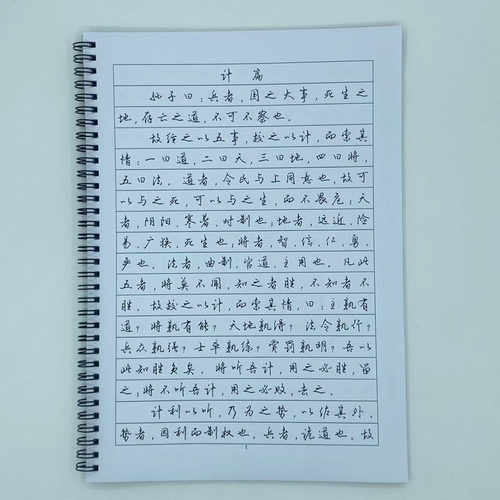 计篇
孙子曰：兵者，国之大事，死生之
地，存亡之道，不可不察也。
故经之以五事，校之以计，而索其
情：一曰道，二曰天，三曰地，四曰将，
五曰法。道者，令民与上同意也，故可
以与之死，可以与之生，而不畏危；天
者，阴阳、寒暑、时制也；地者，远近、险
易、广狭、死生也；将者，智、信、仁、勇、
严也。法者，曲制、官道、主用也。凡此
五者，将莫不闻，知之者胜，不知者不
胜。故校之以计，而索其情，曰：主孰有
道？将孰有能？天地孰得？法令孰行？
兵众孰强？士卒孰练？赏罚孰明？吾以
此知胜负矣。将听吾计，用之必胜，留
之；将不听吾计，用之必败，去之。
计利以听，乃为之势，以佐其外。
势者，因利而制权也。兵者，诡道也。故
1